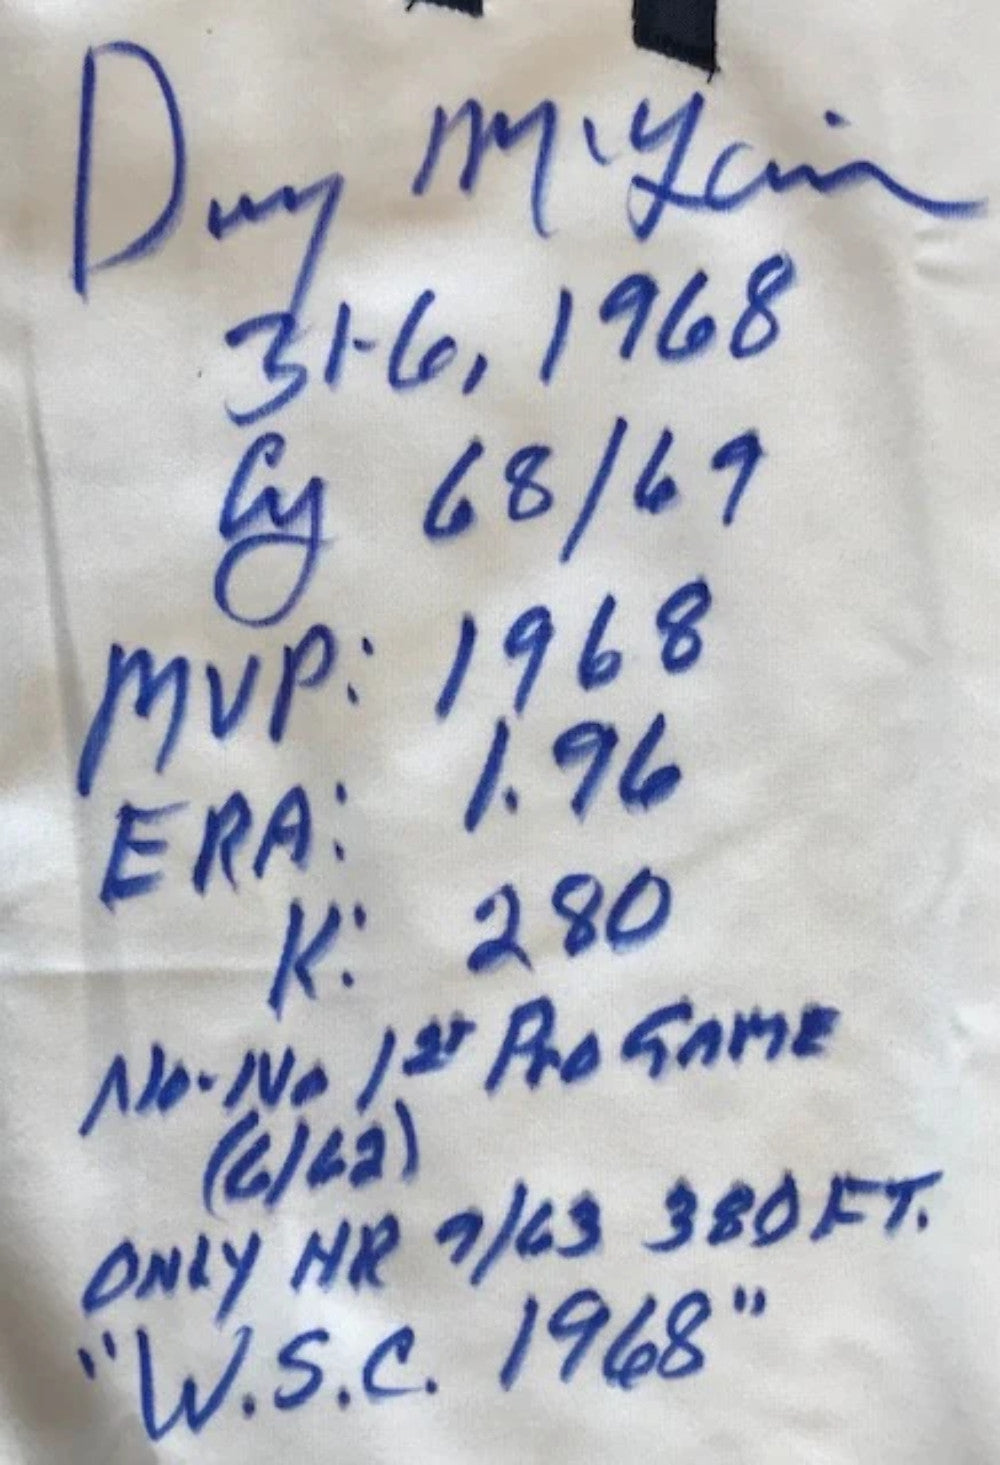 Denny McLain
31-6, 1968
Cy 68/69
MVP: 1968
ERA: 1.96
K: 280
No-No 1st Pro Game
(6/62)
ONLY HR 9/63 380 FT.
"W.S.C. 1968"